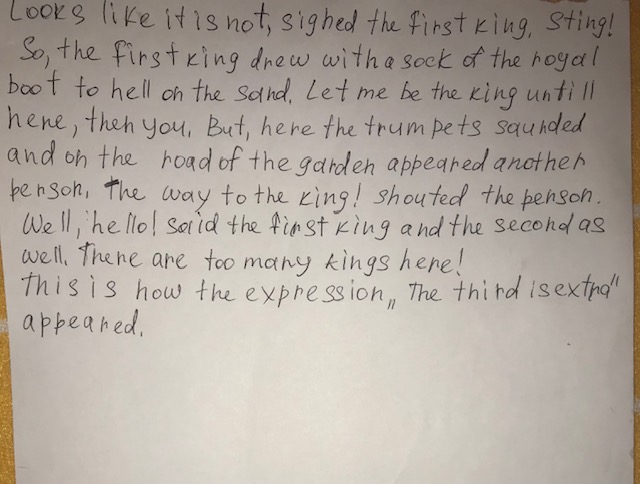 Looks like it is not, sighed the first king, Sting!
So, the first king drew with a sock of the royal
boot to hell on the sand. Let me be the king untill
here, then you. But, here the trumpets saunded
and on the road of the garden appeared another
person. The way to the king! shouted the person.
Well, hello! said the first king and the second as
well. There are too many kings here!
This is how the expression „The third is extra"
appeared.